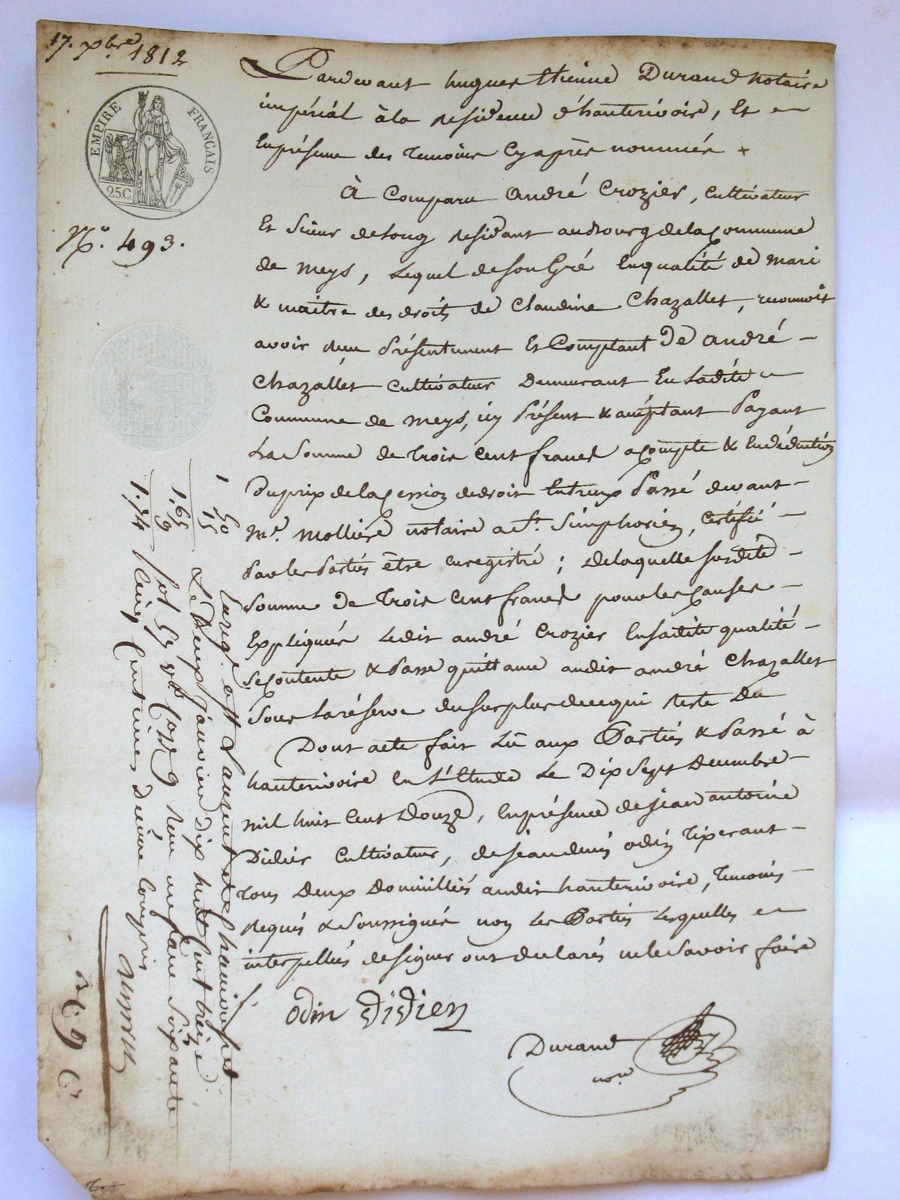 17. xbre 1812
EMPIRE FRANÇAIS
25C
N.º 493.
Pardevant hugues Etienne Durand notaire
impérial à la residence d'hauterivoire, Et en
Enprésence des temoins Cyaprès nommés +
À Comparu andré Crozier, Cultivateur
Et Sieur delong residant aubourg dela Commune
de Meys, Lequel de son Gré Enqualité de mari
& maitre des droits de Claudine Chazallet, reconnoit
avoir reçu Présentement Et Comptant De andré -
Chazallet Cultivateur Demeurant En Ladite
Commune de Meys, icy Présent & acceptant Payant
La Somme de Trois Cent francs acompte & En déduction
Duprix dela Cession dedroit Entreux Passé devant -
Me. Mollière notaire a St. Simphorien, Certifié -
Par les Parties être enregistré ; delaquelle susdite -
Somme de Trois Cent francs pour les Causes -
Expliquées Ledit andré Crozier Ensadite qualité -
Se Contente & Passe quittance audit andré Chazallet
Sous La réserve du Surplus decequi reste Du
Dont acte fait Lu aux Parties & Passé à
hauterivoire En L'Etude Le Dix Sept Decembre -
Mil huit Cent Douze, Enprésence de Jean antoine
Didier Cultivateur, de Jean denis odin Tixerant -
Tous Deux Domiciliés audit hauterivoire, Temoins
Requis & Soussignés non Les Parties Lesquelles en
interpellées designer ont declarés nele Savoir faire
odin Didier
Durand
nore
1 50
15
1.65
9
1.74
Enregé a St Laurent de Chamousset
Le Deux janvier dix huit Cent treize
fol 57 vo Case 9 reçu un franc Soixante
Cinq Centimes decime Compris